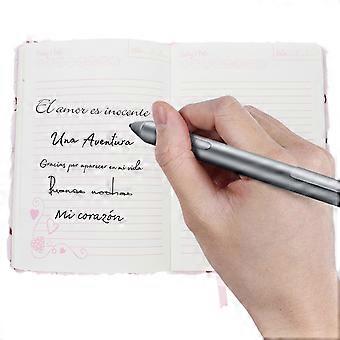 El amor es inocente
Una Aventura
Gracias por aparecer en mi vida
Buenas noches
Mi corazón